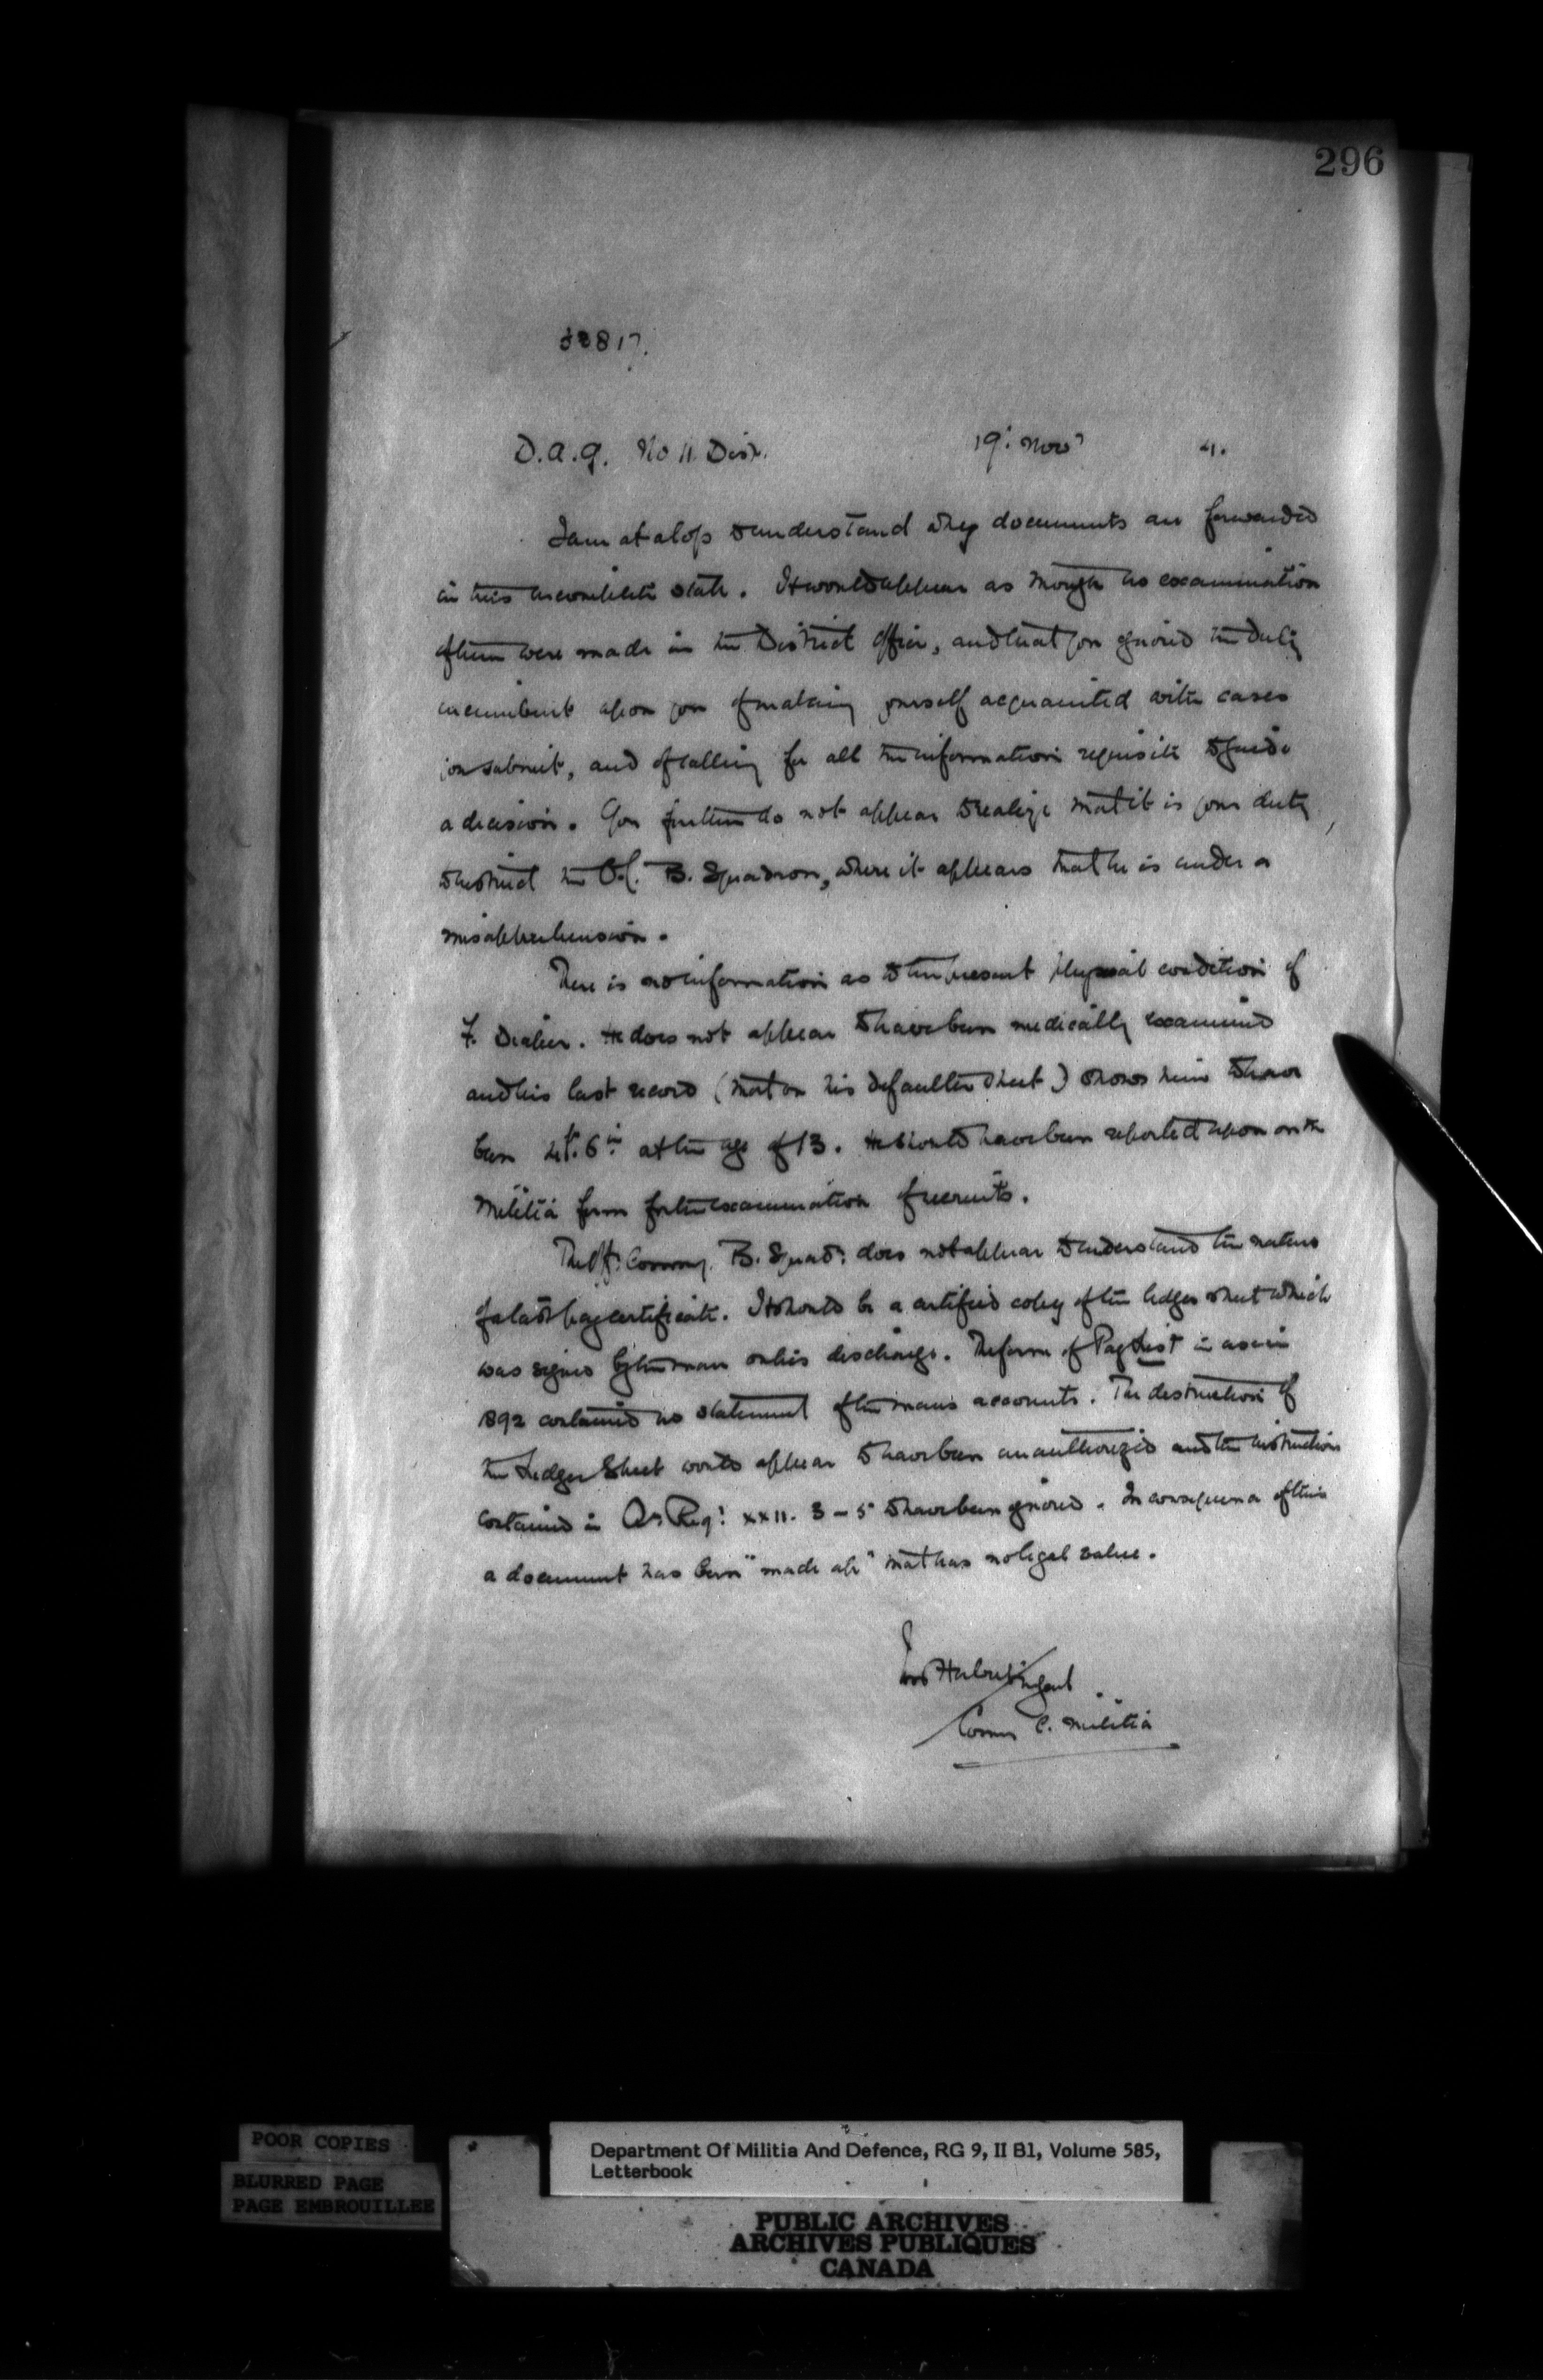 296
32817.
D.A.G. No 11 Dist. 19th Novr 4.
I am at a loss to understand why documents are forwarded
in this incomplete state. It would appear as though no examination
of them were made in the District Office, and that you ignored the duty
incumbent upon you of making yourself acquainted with cases
you submit, and of calling for all the information requisite to guide
a decision. You further do not appear to realize that it is your duty
to instruct the O.C. B. Squadron, where it appears that he is under a
misapprehension.
There is no information as to the present physical condition of
F. He does not appear to have been medically examined
and his last record (that on his defaulter sheet) shows him to have
been 4ft. 6in at the age of 13. He should have been reported upon on the
Militia form for the examination of recruits.
The Off. Commg. B. Squad: does not appear to understand the nature
of a last pay certificate. It should be a certified copy of the ledger sheet which
was signed by the man on his discharge. The form of Pay List in use in
1892 contained no statement of the mans accounts. The destruction of
the Ledger Sheet would appear to have been unauthorized and the instructions
contained in Qs Reg: XXII. 3-5 to have been ignored. In consequence of this
a document has been "made up" that has no legal value.
Ivor Herbert
Comg C. Militia
POOR COPIES
BLURRED PAGE
PAGE EMBROUILLEE
Department Of Militia And Defence, RG 9, II B1, Volume 585,
Letterbook
PUBLIC ARCHIVES
ARCHIVES PUBLIQUES
CANADA